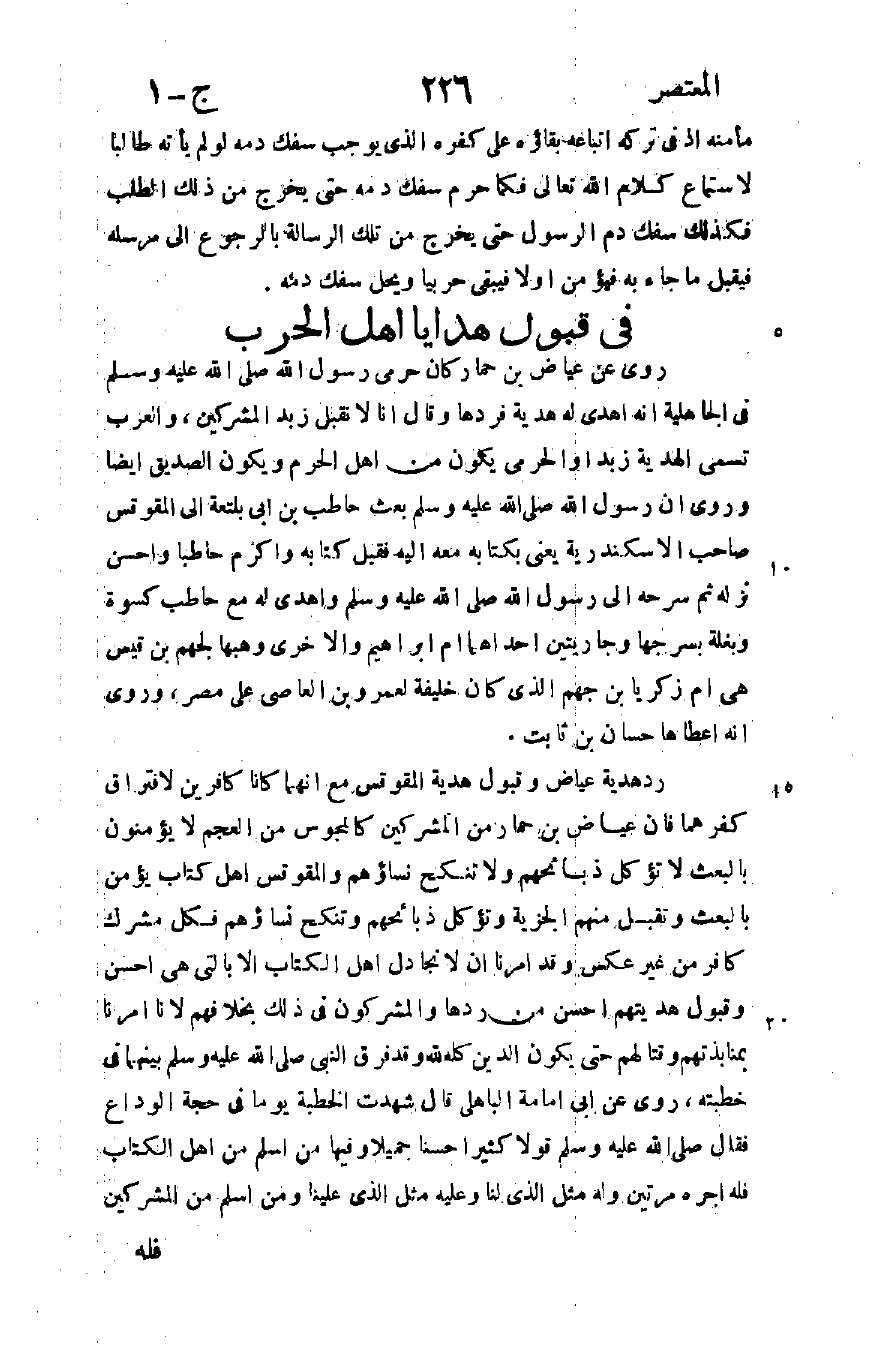 المعتصر ٢٢٦ ج - ١
مأمنه اذ فى تركه اتباعه بقاؤه على كفره الذى يوجب سفك دمه لو لم يأته طالبا
لاستماع كلام الله تعالى فكما حرم سفك دمه حتى يخرج من ذلك الطلب
فكذلك سفك دم الرسول حتى يخرج من تلك الرسالة بالرجوع الى مرسله
فيقبل ما جاء به فهؤ من اولا فيبقى حربيا ويحل سفك دمه .
فى قبول هدايا اهل الحرب
٥
روى عن عياض بن حمار كان حرمى رسول الله صلى الله عليه وسلم
فى الجاهلية انه اهدى له هدية فردها وقال انا لا نقبل زبد المشركين ، والعرب
تسمى الهدية زبدا والحرمى يكون من اهل الحرم ويكون الصديق ايضا
وروى ان رسول الله صلى الله عليه وسلم بعث حاطب بن ابى بلتعة الى المقوقس
صاحب الاسكندرية يعنى بكتابه معه اليه فقبل كتابه واكرم حاطبا واحسن
١٠
نزله ثم سرحه الى رسول الله صلى الله عليه وسلم واهدى له مع حاطب كسوة
وبغلة بسرجها وجاريتين احداهما ام ابراهيم والاخرى وهبها لجهم بن قيس
هى ام زكريا بن جهم الذى كان خليفة لعمرو بن العاصى على مصر ، وروى
انه اعطاها حسان بن ثابت .
رد هدية عياض وقبول هدية المقوقس مع انهما كانا كافرين لافتراق
١٥
كفرهما فان عياض بن حمار من المشركين كالمجوس من العجم لا يؤمنون
بالبعث لا تؤكل ذبائحهم ولا تنكح نساؤهم والمقوقس اهل كتاب يؤمن
بالبعث وتقبل منهم الجزية وتؤكل ذبائحهم وتنكح نساؤهم فكل مشرك
كافر من غير عكس وقد امرنا ان لا نجادل اهل الكتاب الا بالتى هى احسن
وقبول هديتهم احسن من ردها والمشركون فى ذلك بخلافهم لانا امرنا
٢٠
بمنابذتهم وقتالهم حتى يكون الدين كله لله وقد فرق النبى صلى الله عليه وسلم بينهما فى
خطبته ، روى عن ابى امامة الباهلى قال شهدت الخطبة يوما فى حجة الوداع
فقال صلى الله عليه وسلم قولا كثيرا حسنا جميلا وفيها من اسلم من اهل الكتاب
فله اجره مرتين وله مثل الذى لنا وعليه مثل الذى علينا ومن اسلم من المشركين
فله